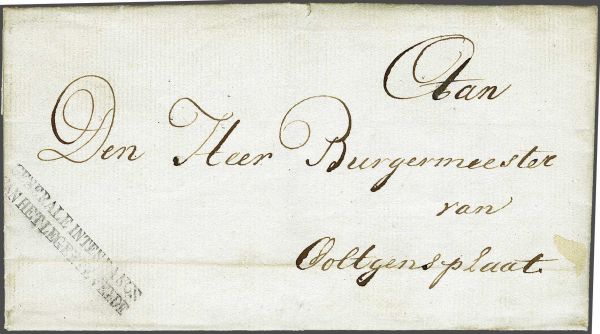 Aan
Den Heer Burgermeester
van
Ooltgensplaat.
GENERALE INTENDANCE
VAN HET LEGER TE VELDE